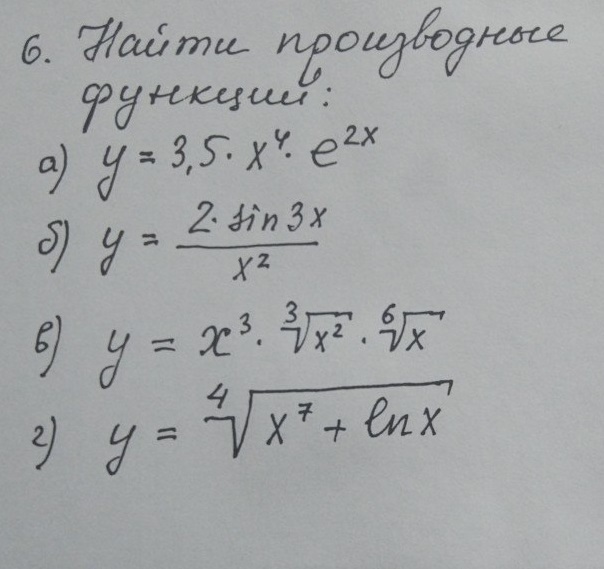 6. Найти производные
функций:
а) y = 3,5 · x⁴ · e²ˣ
б) y = (2 · sin 3x) / x²
в) y = x³ · ∛x² · ⁶√x
г) y = ⁴√(x⁷ + ln x)